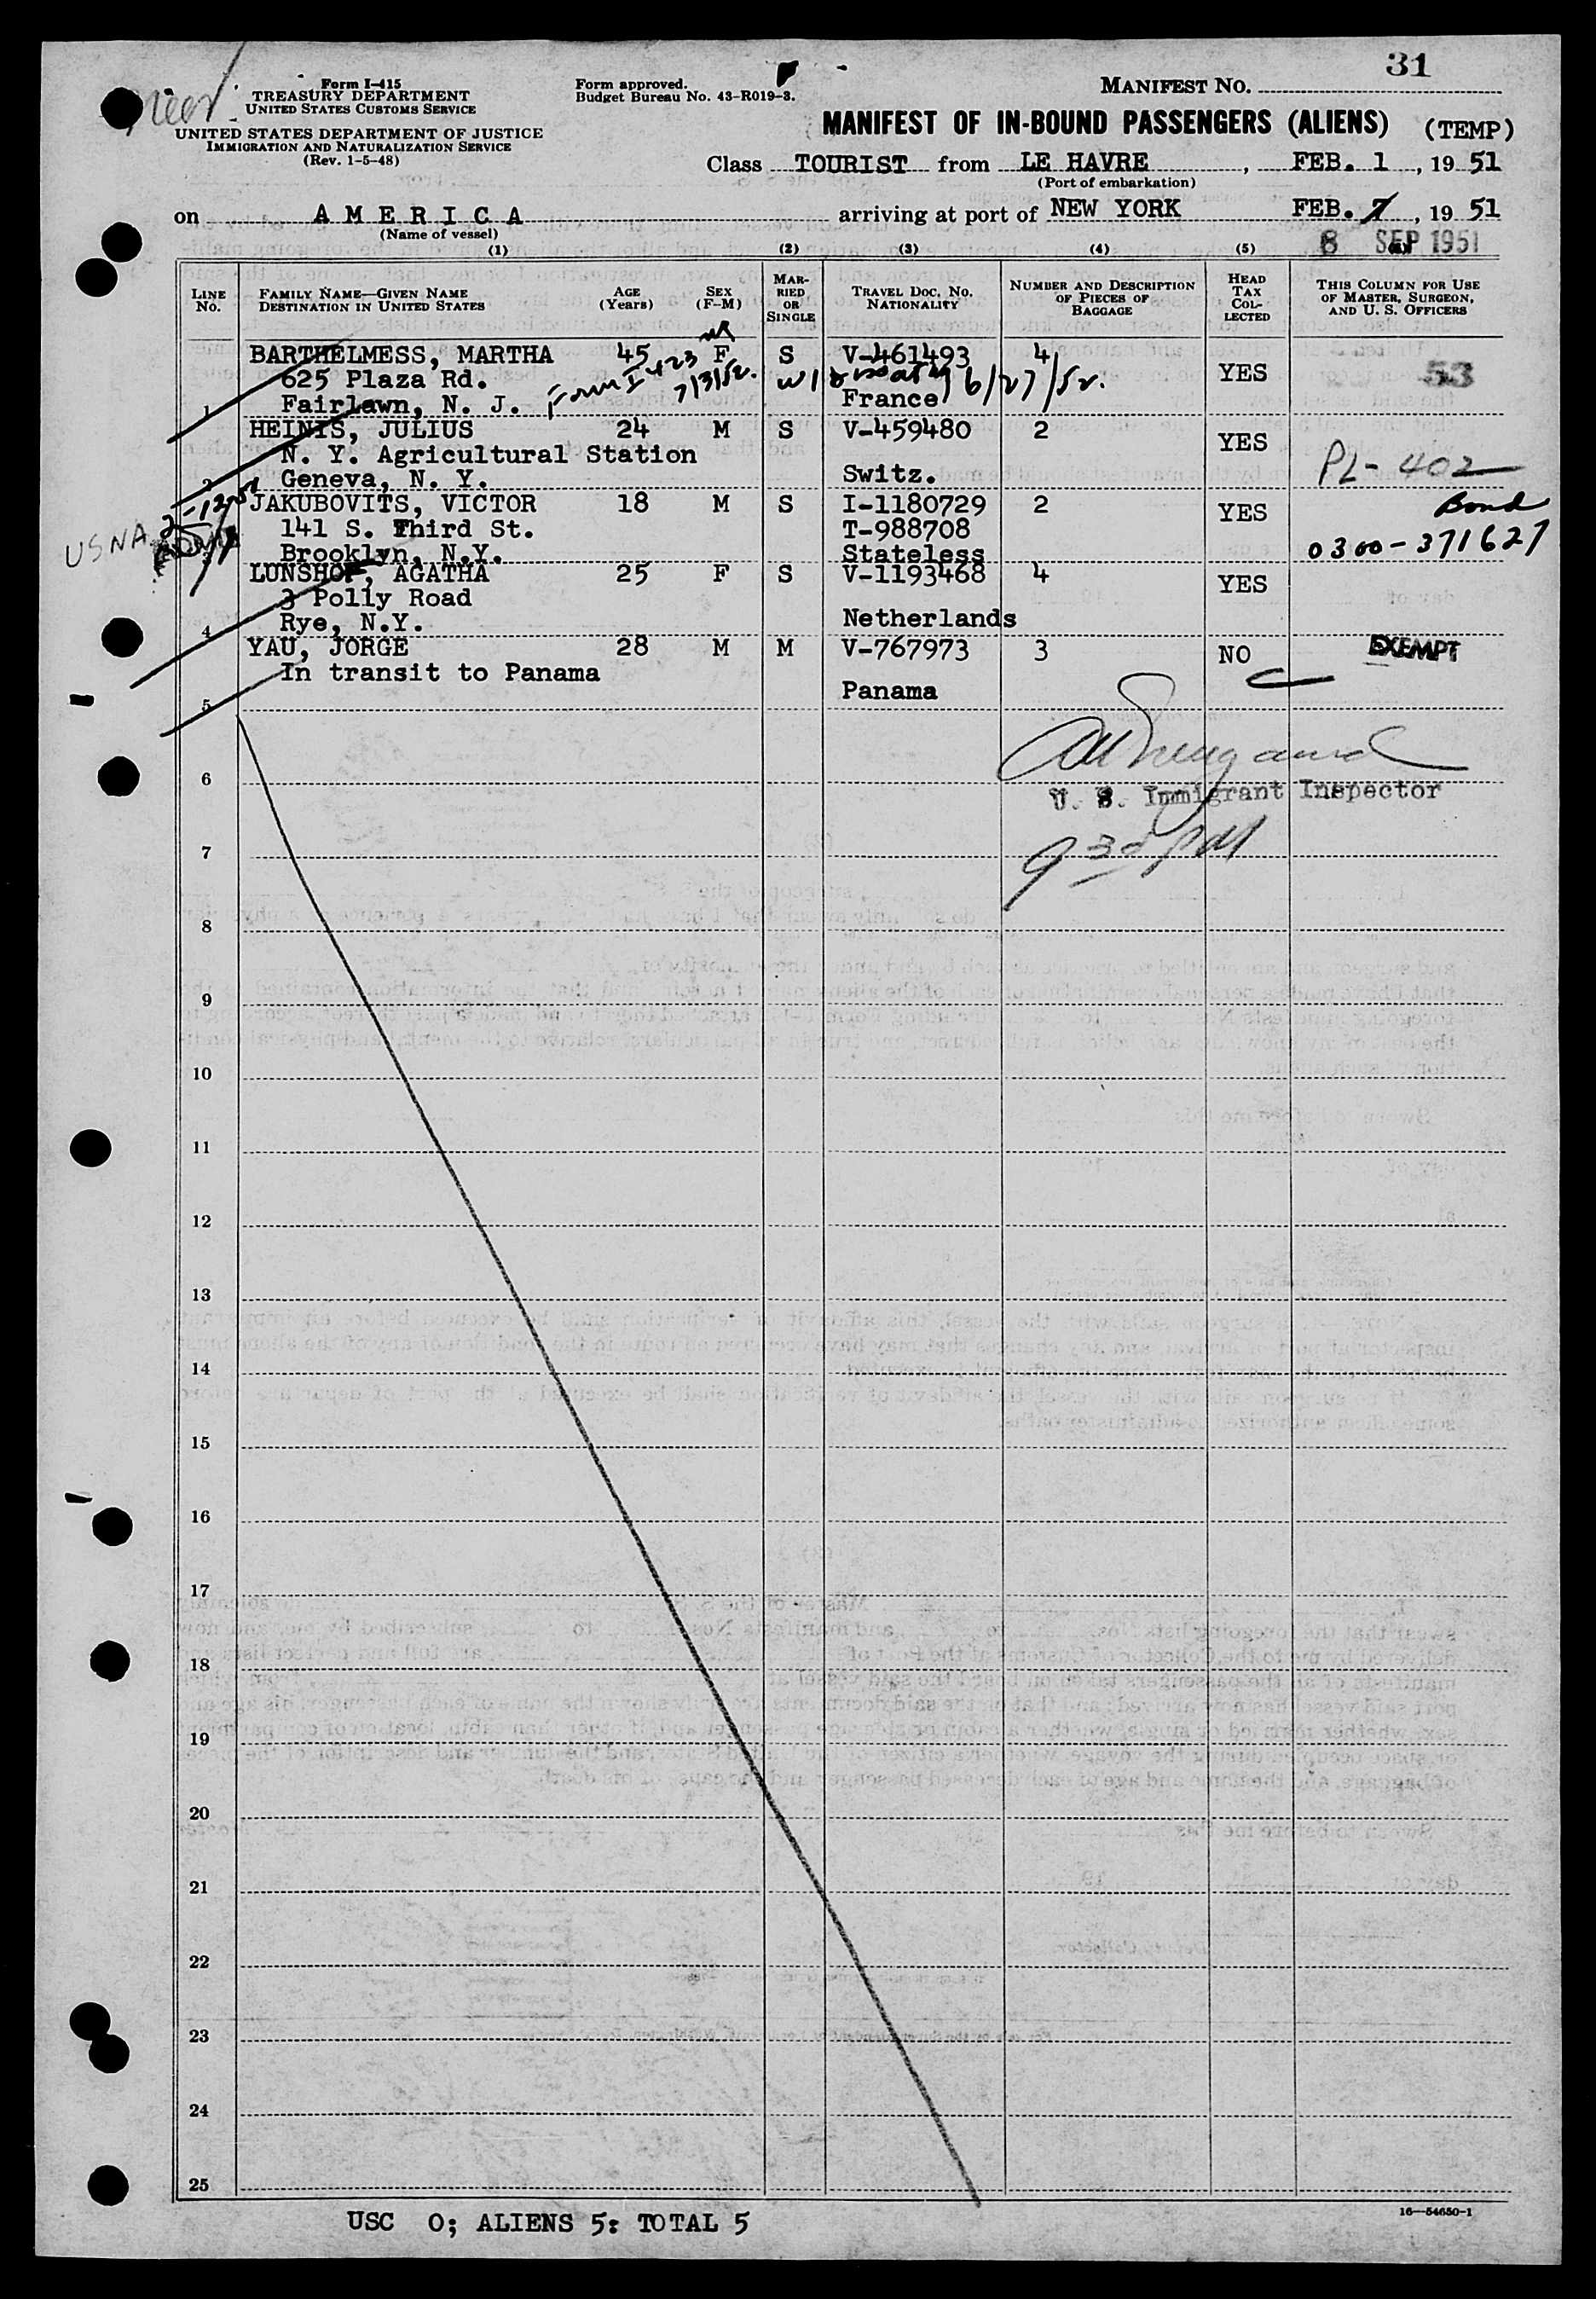 31
Form I-415
TREASURY DEPARTMENT
UNITED STATES CUSTOMS SERVICE
UNITED STATES DEPARTMENT OF JUSTICE
IMMIGRATION AND NATURALIZATION SERVICE
(Rev. 1-5-48)
Form approved.
Budget Bureau No. 43-R019-3.
MANIFEST NO.
MANIFEST OF IN-BOUND PASSENGERS (ALIENS) (TEMP)
Class TOURIST from LE HAVRE, FEB. 1, 19 51
(Port of embarkation)
on AMERICA arriving at port of NEW YORK FEB. 7, 19 51
(Name of vessel)
8 SEP 1951
(1) (2) (3) (4) (5)
LINE NO. FAMILY NAME—GIVEN NAME DESTINATION IN UNITED STATES AGE (Years) SEX (F-M) MARRIED OR SINGLE TRAVEL DOC. NO. NATIONALITY NUMBER AND DESCRIPTION OF PIECES OF BAGGAGE HEAD TAX COLLECTED THIS COLUMN FOR USE OF MASTER, SURGEON, AND U. S. OFFICERS
BARTHELMESS, MARTHA 45 F S V-461493 4
625 Plaza Rd. Form I 423 7/3/52. 6/27/52. YES 53
1 Fairlawn, N. J. France
HEINIS, JULIUS 24 M S V-459480 2 YES
N. Y. Agricultural Station PL-402
2 Geneva, N. Y. Switz.
JAKUBOVITS, VICTOR 18 M S I-1180729 2 YES Bond
USNA 141 S. Third St. T-988708 0300-371627
3 Brooklyn, N.Y. Stateless
LUNSHOF, AGATHA 25 F S V-1193468 4 YES
3 Polly Road
4 Rye, N.Y. Netherlands
YAU, JORGE 28 M M V-767973 3 NO EXEMPT
In transit to Panama
5 Panama
6
U. S. Immigrant Inspector
7 9 30 PM
8
9
10
11
12
13
14
15
16
17
18
19
20
21
22
23
24
25
16—54650-1
USC 0; ALIENS 5: TOTAL 5